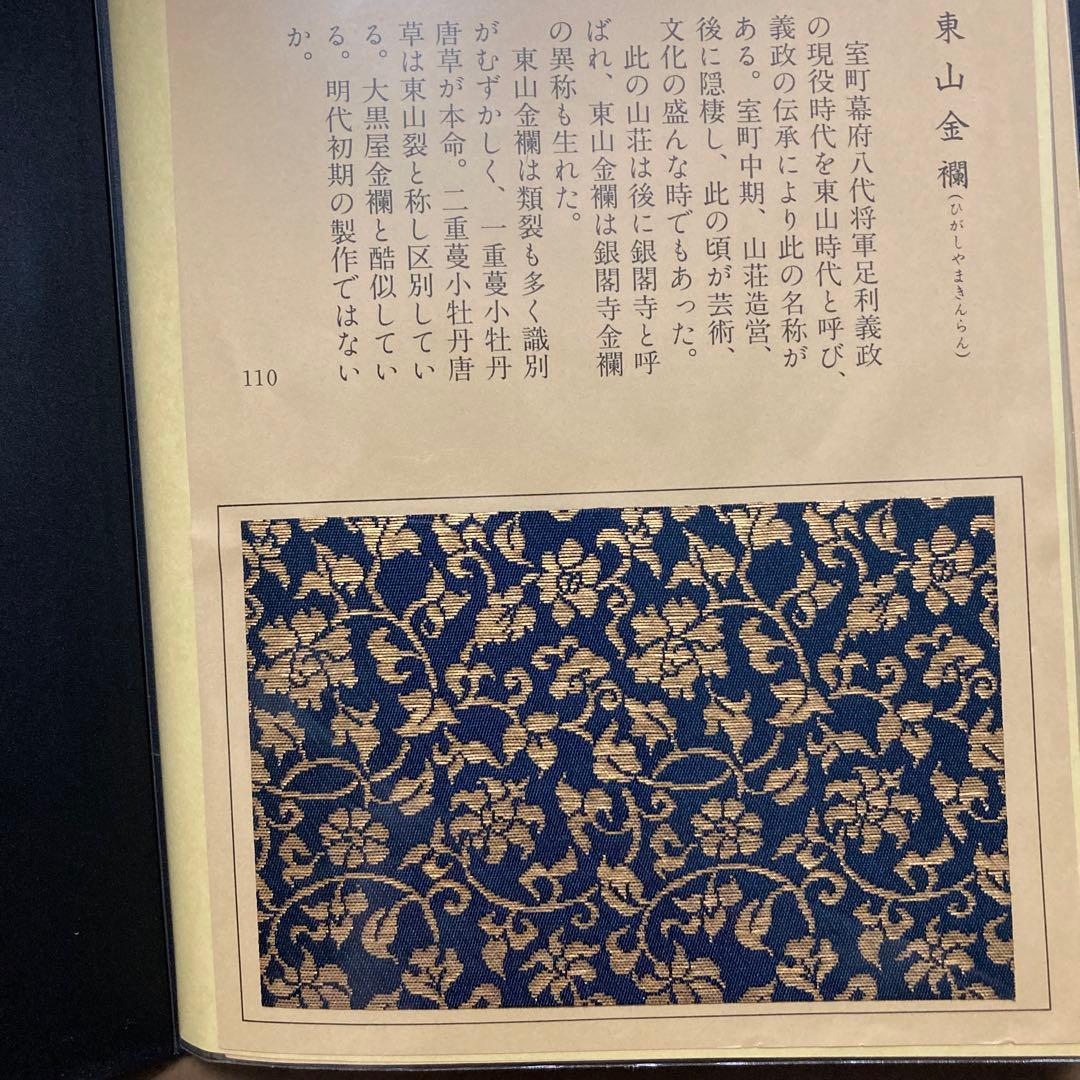 東山金襴(ひがしやまきんらん)
室町幕府八代将軍足利義政
の現役時代を東山時代と呼び、
義政の伝承により此の名称が
ある。室町中期、山荘造営、
後に隠棲し、此の頃が芸術、
文化の盛んな時でもあった。
此の山荘は後に銀閣寺と呼
ばれ、東山金襴は銀閣寺金襴
の異称も生れた。
東山金襴は類裂も多く識別
がむずかしく、一重蔓小牡丹
唐草が本命。二重蔓小牡丹唐
草は東山裂と称し区別してい
る。大黒屋金襴と酷似してい
る。明代初期の製作ではない
か。
110